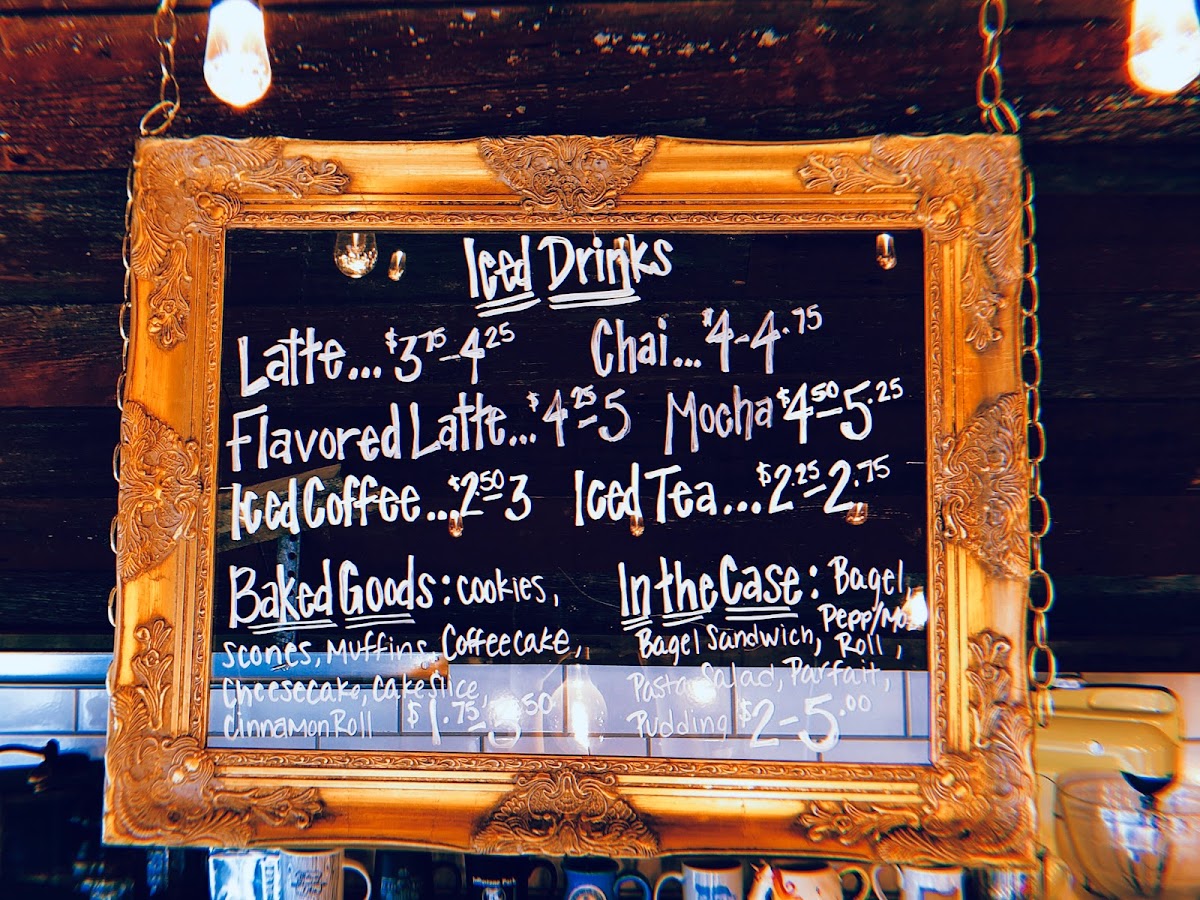 Iced Drinks
Latte...$3.75-4.25 Chai...$4-4.75
Flavored Latte...$4.25-5 Mocha $4.50-5.25
Iced Coffee...$2.50-3 Iced Tea...$2.25-2.75
Baked Goods: cookies,
scones, Muffins, Coffeecake,
Cheesecake, cake slice,
Cinnamon Roll $1.75-3.50
In the Case: Bagel,
Pepp/Mo
Bagel Sandwich, Roll,
Pasta Salad, Parfait,
Pudding $2-5.00